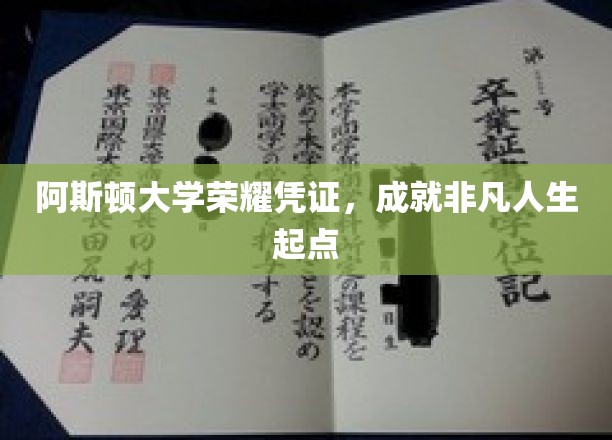 阿斯顿大学荣耀凭证，成就非凡人生
起点
第 号
卒業証 学位記
本学商学部 所定の課程を
修めて本学 ことを認め
学士(商学)の する
平成
東京国際大学 村愛理
東京国際大 長田尻嗣夫